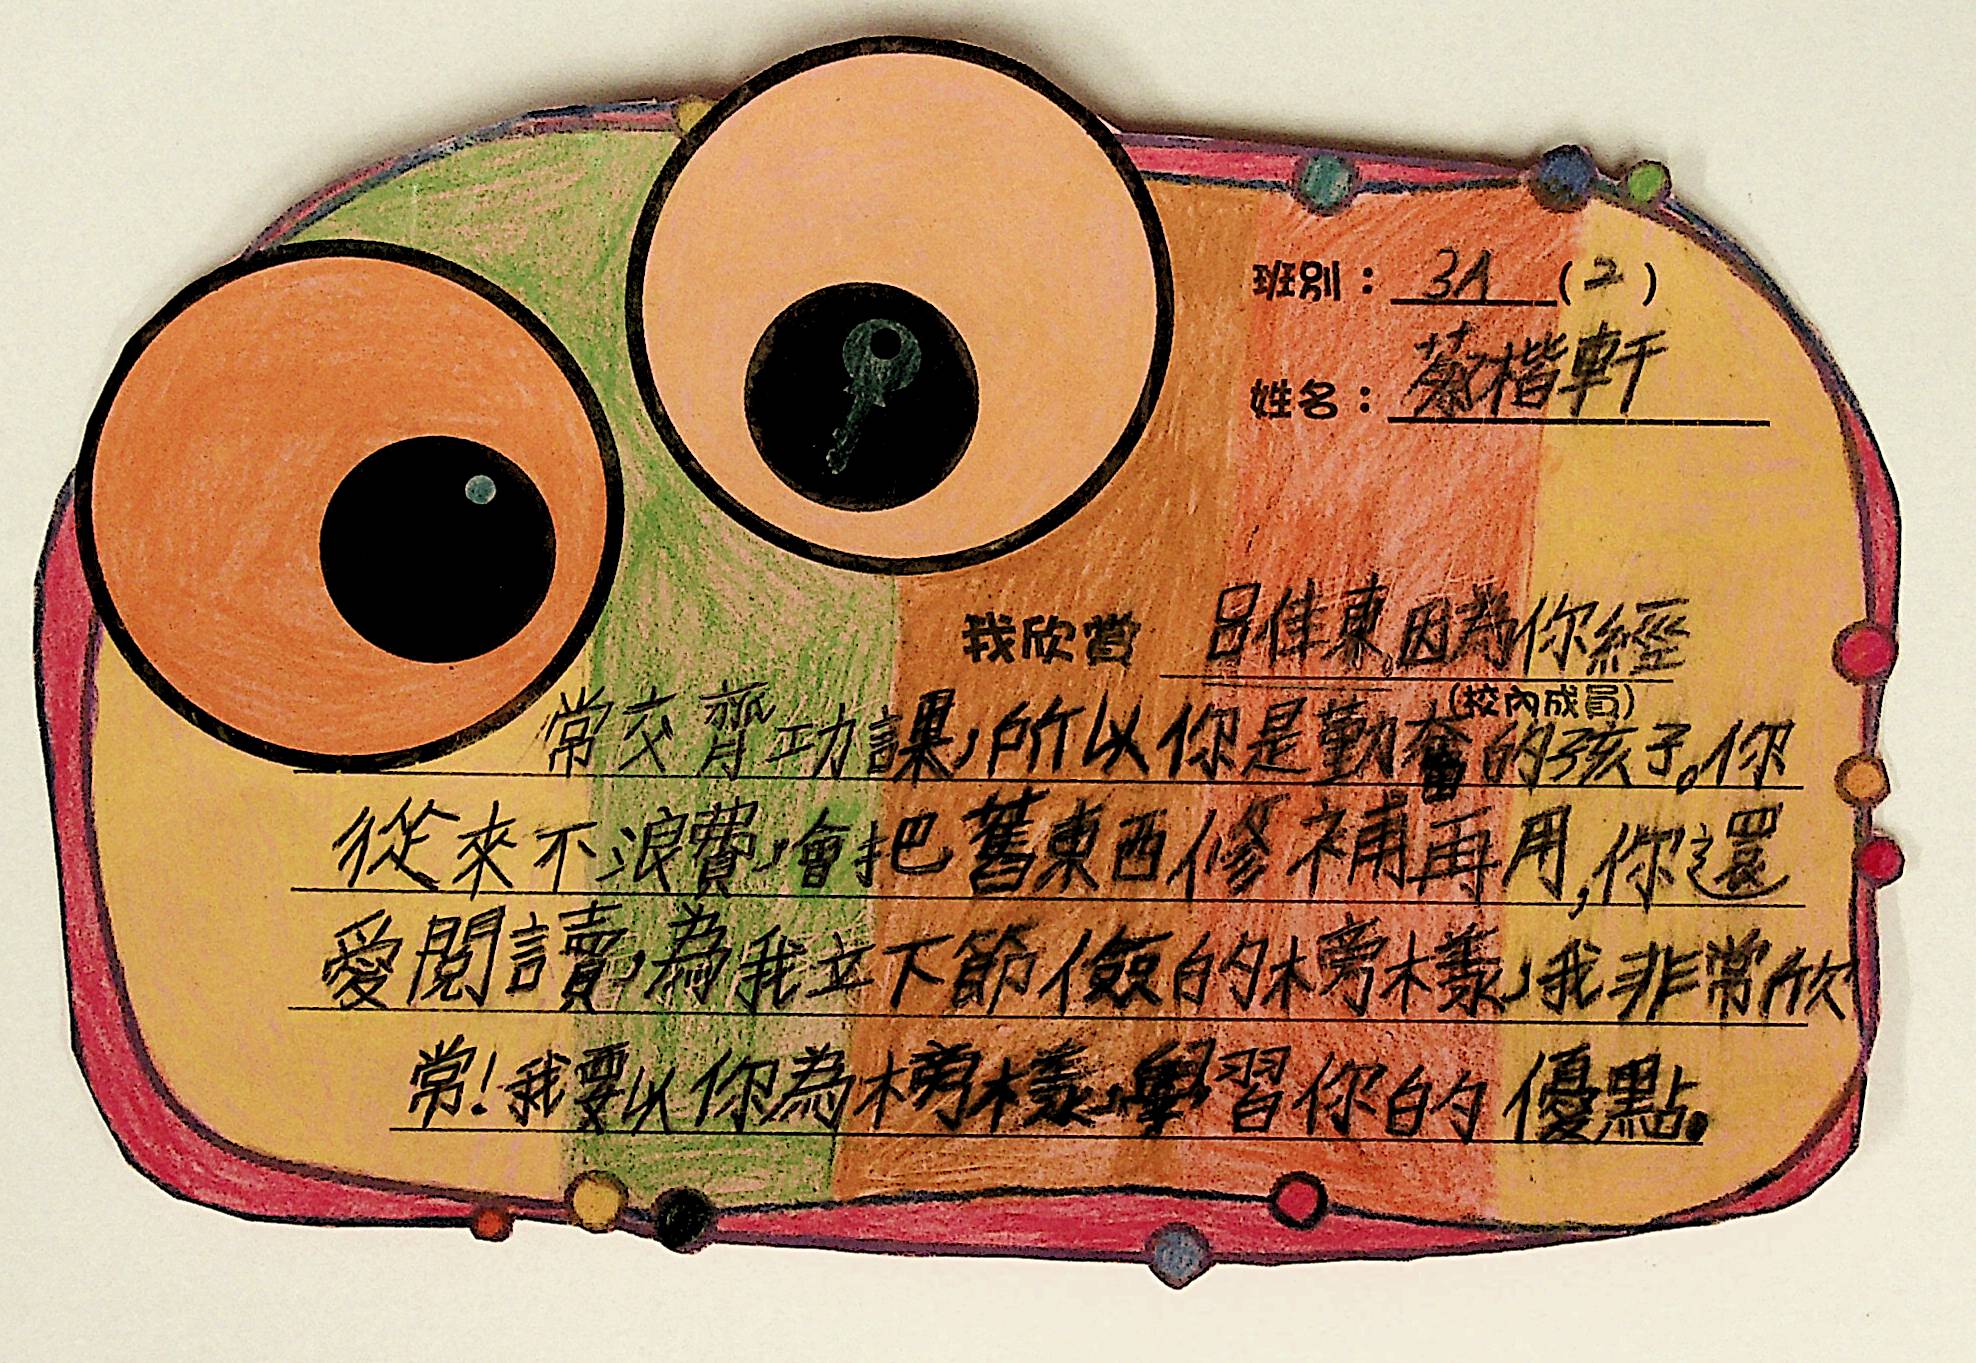 班別：3A（2）
姓名：蔡楷軒
我欣賞 呂偉東，因為你經
（校內成員）
常交齊功課，所以你是勤奮的孩子。你
從來不浪費，會把舊東西修補再用，你還
愛閱讀，為我立下節儉的榜樣，我非常欣
常！我要以你為榜樣，學習你的優點。